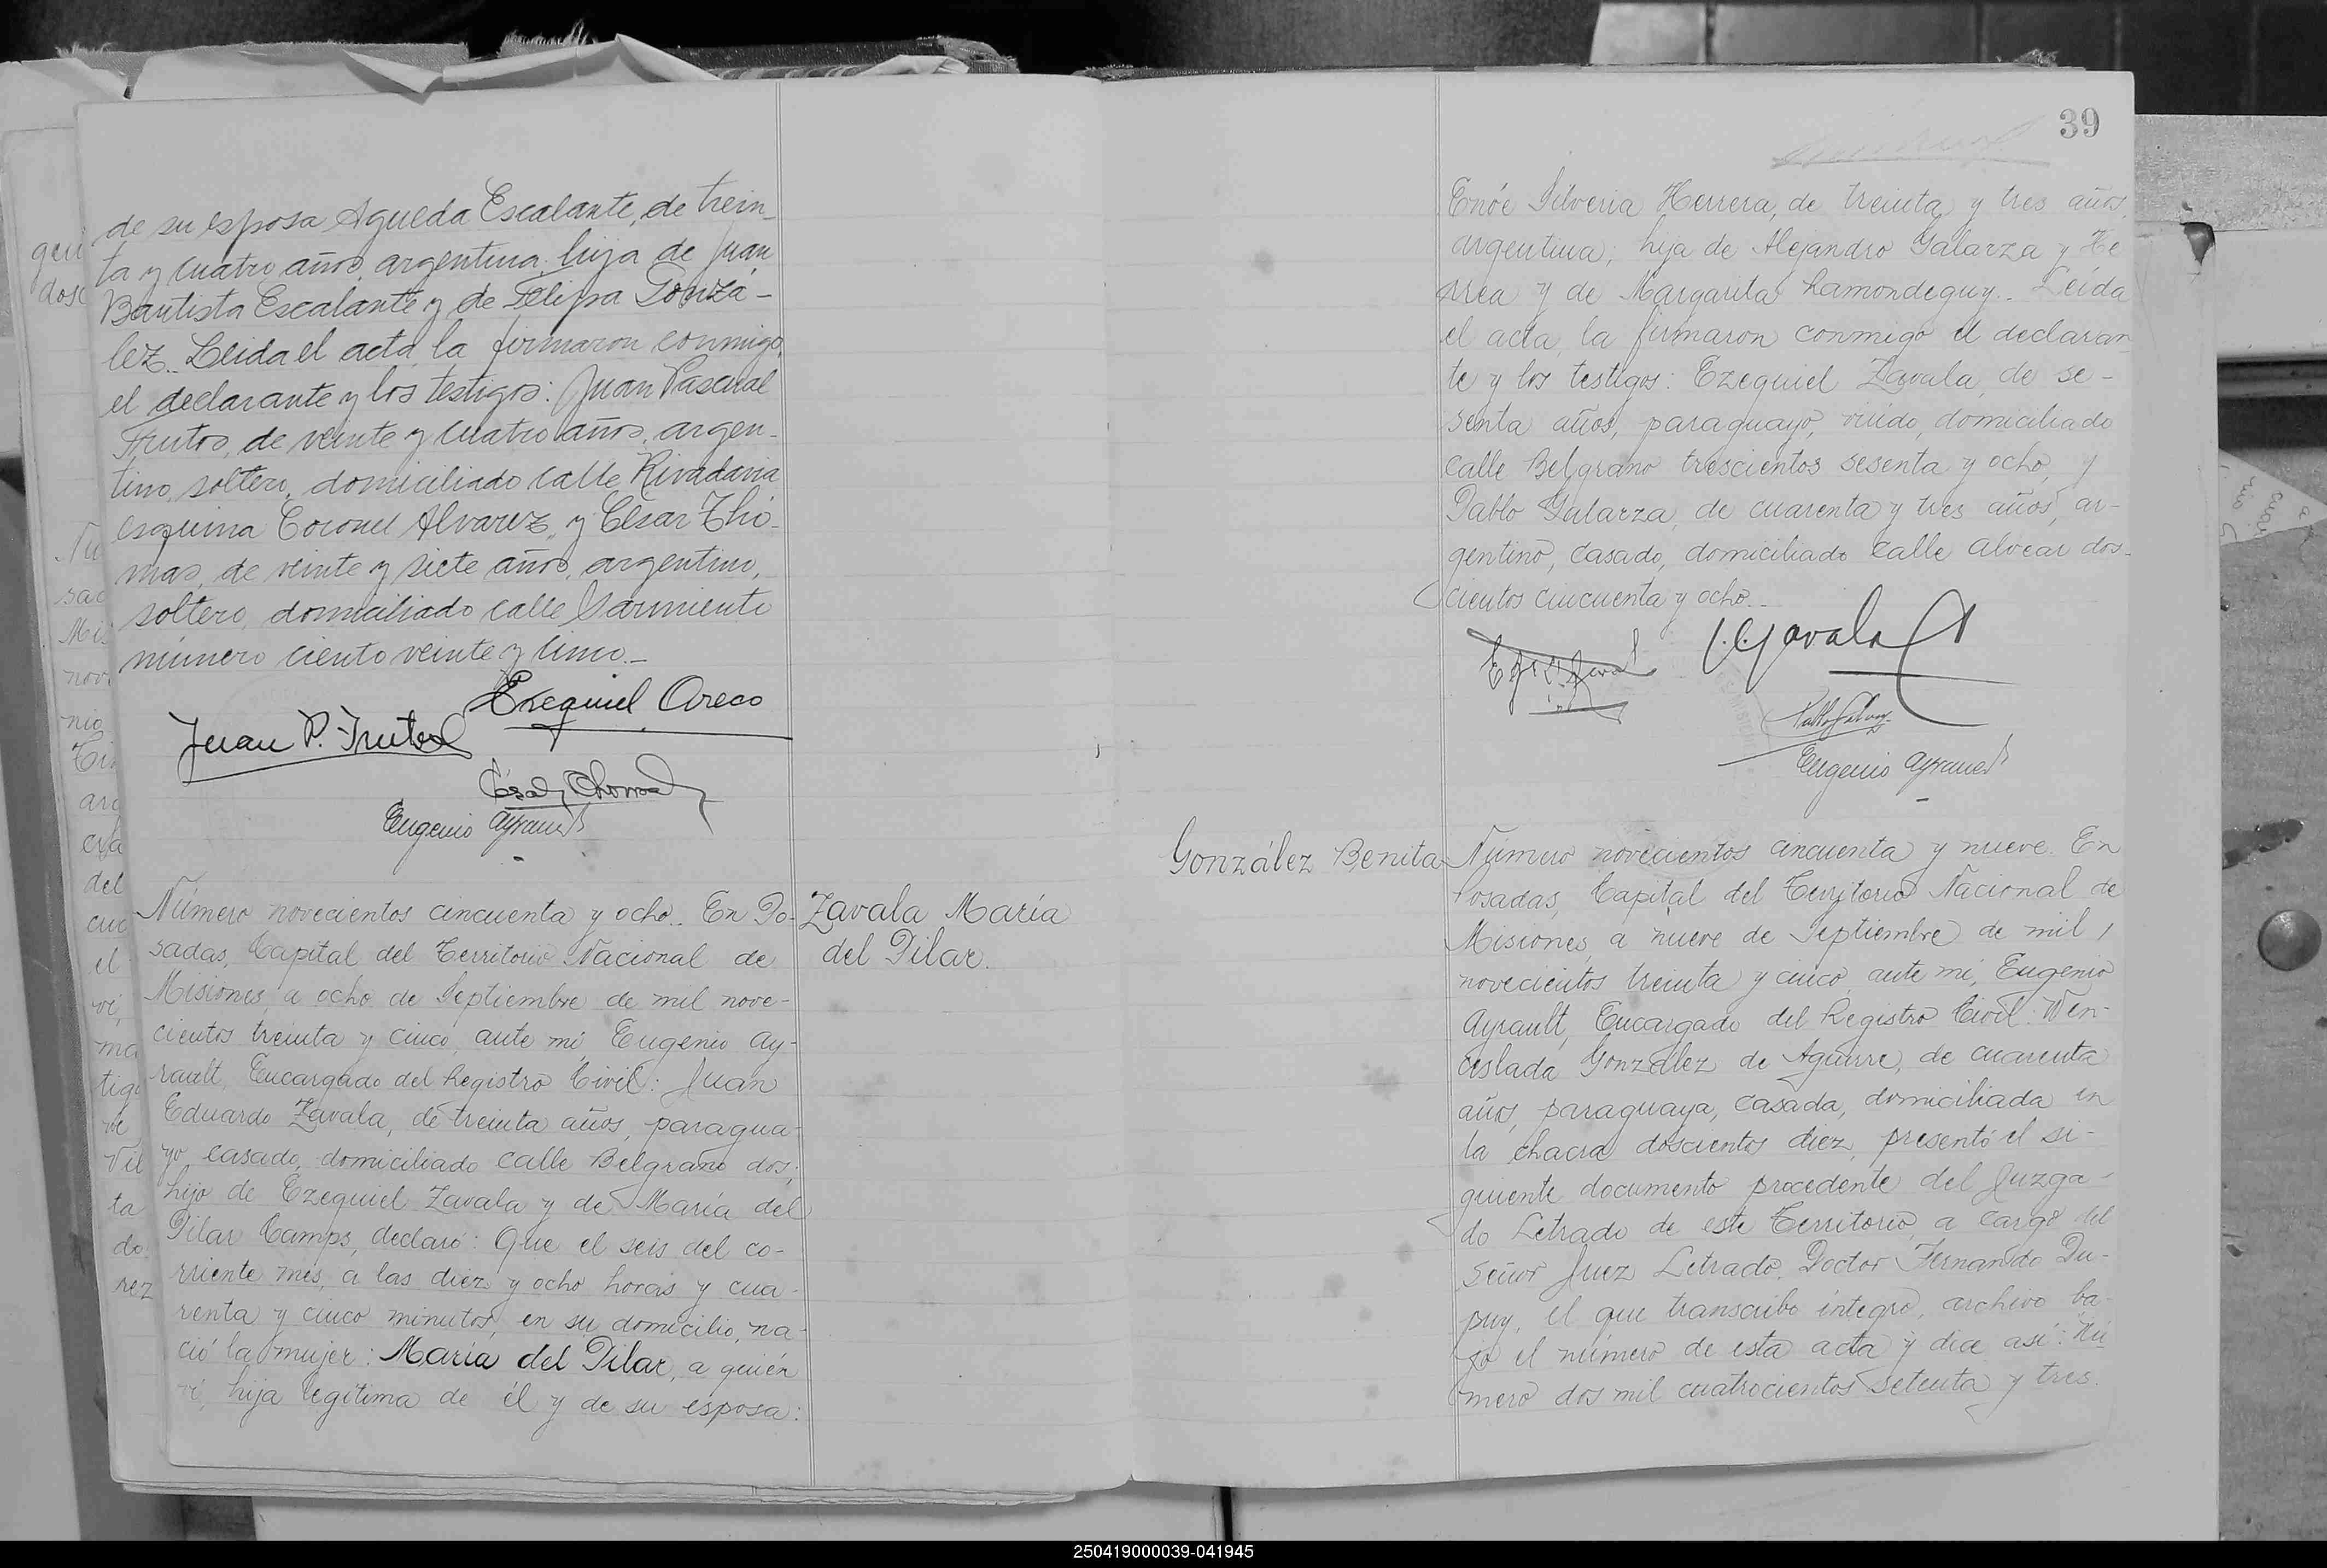 de su esposa Agueda Escalante, de trein-
ta y cuatro años, argentina, hija de Juan
Bautista Escalante y de Felipa Gonzá-
lez.- Leida el acta, la firmaron conmigo,
el declarante y los testigos: Juan Pascual
Frutos, de veinte y cuatro años, argen-
tino, soltero, domiciliado calle Rivadavia
esquina Coronel Alvarez, y César Tho-
mas, de veinte y siete años, argentino,
soltero, domiciliado calle Sarmiento
número ciento veinte y cinco.-
Ezequiel Oreco
Juan P. Frutos
César Thomas
Eugenio Ayrault
Número novecientos cincuenta y ocho.. En Po-
sadas, Capital del Territorio Nacional de
Misiones, a ocho de Septiembre de mil nove-
cientos treinta y cinco, ante mí, Eugenio Ay-
rault, Encargado del Registro Civil: Juan
Eduardo Zavala, de treinta años, paragua-
yo, casado, domiciliado calle Belgrano dos;
hijo de Ezequiel Zavala y de María del
Pilar Camps, declaró: Que el seis del co-
rriente mes, a las diez y ocho horas y cua-
renta y cinco minutos, en su domicilio, na-
ció la mujer: María del Pilar, a quién
ví, hija legítima de él y de su esposa:
Zavala María
del Pilar.
39
Enóe Silveria Herrera, de treinta y tres años,
argentina; hija de Alejandro Galarza y He
rrea y de Margarita Lamondeguy.. Leída
el acta, la firmaron conmigo el declaran
te y los testigos: Ezequiel Zavala, de se-
senta años, paraguayo, viudo, domiciliado
calle Belgrano trescientos sesenta y ocho, y
Pablo Galarza, de cuarenta y tres años, ar-
gentino, casado, domiciliado calle Alvear dos-
cientos cincuenta y ocho..
Zavala
Eugenio Ayrault
González Benita
Número novecientos cincuenta y nueve. En
Posadas, Capital del Territorio Nacional de
Misiones, a nueve de Septiembre de mil
novecientos treinta y cinco, ante mí, Eugenio
Ayrault, Encargado del Registro Civil: Wen-
ceslada González de Aguirre, de cuarenta
años, paraguaya, casada, domiciliada en
la chacra doscientos diez, presentó el si-
guiente documento procedente del Juzga-
do Letrado de este Territorio, a cargo del
Señor Juez Letrado, Doctor Fernando Du-
puy, el que transcribo íntegro, archivo ba-
jo el número de esta acta y dice así: Nú
mero dos mil cuatrocientos setenta y tres.
250419000039-041945